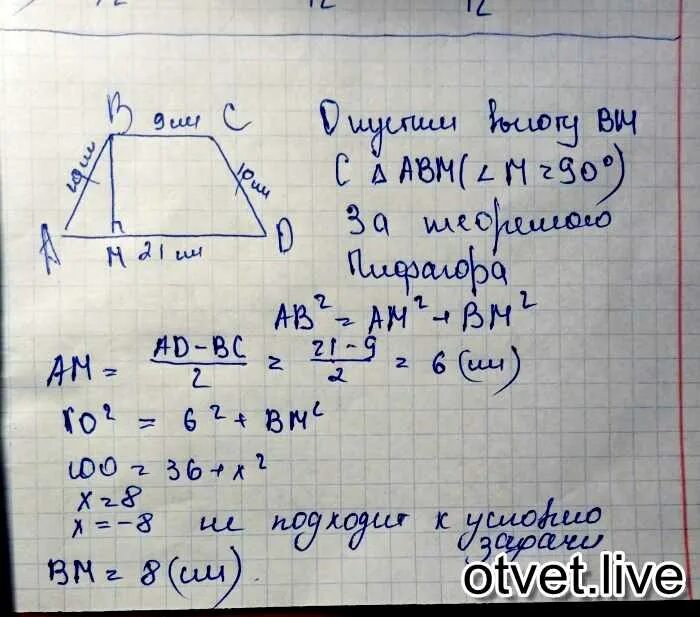 12 12
B 9см C
10см 10см
A M 21 см D
Опустим высоту BM
С △ ABM (∠ M = 90°)
За теоремою
Пифагора
AB² = AM² + BM²
AM = AD-BC/2 = 21-9/2 = 6 (см)
10² = 6² + BM²
100 = 36 + x²
x = 8
x = -8 не подходит к условию
задачи
BM = 8 (см).
otvet.live